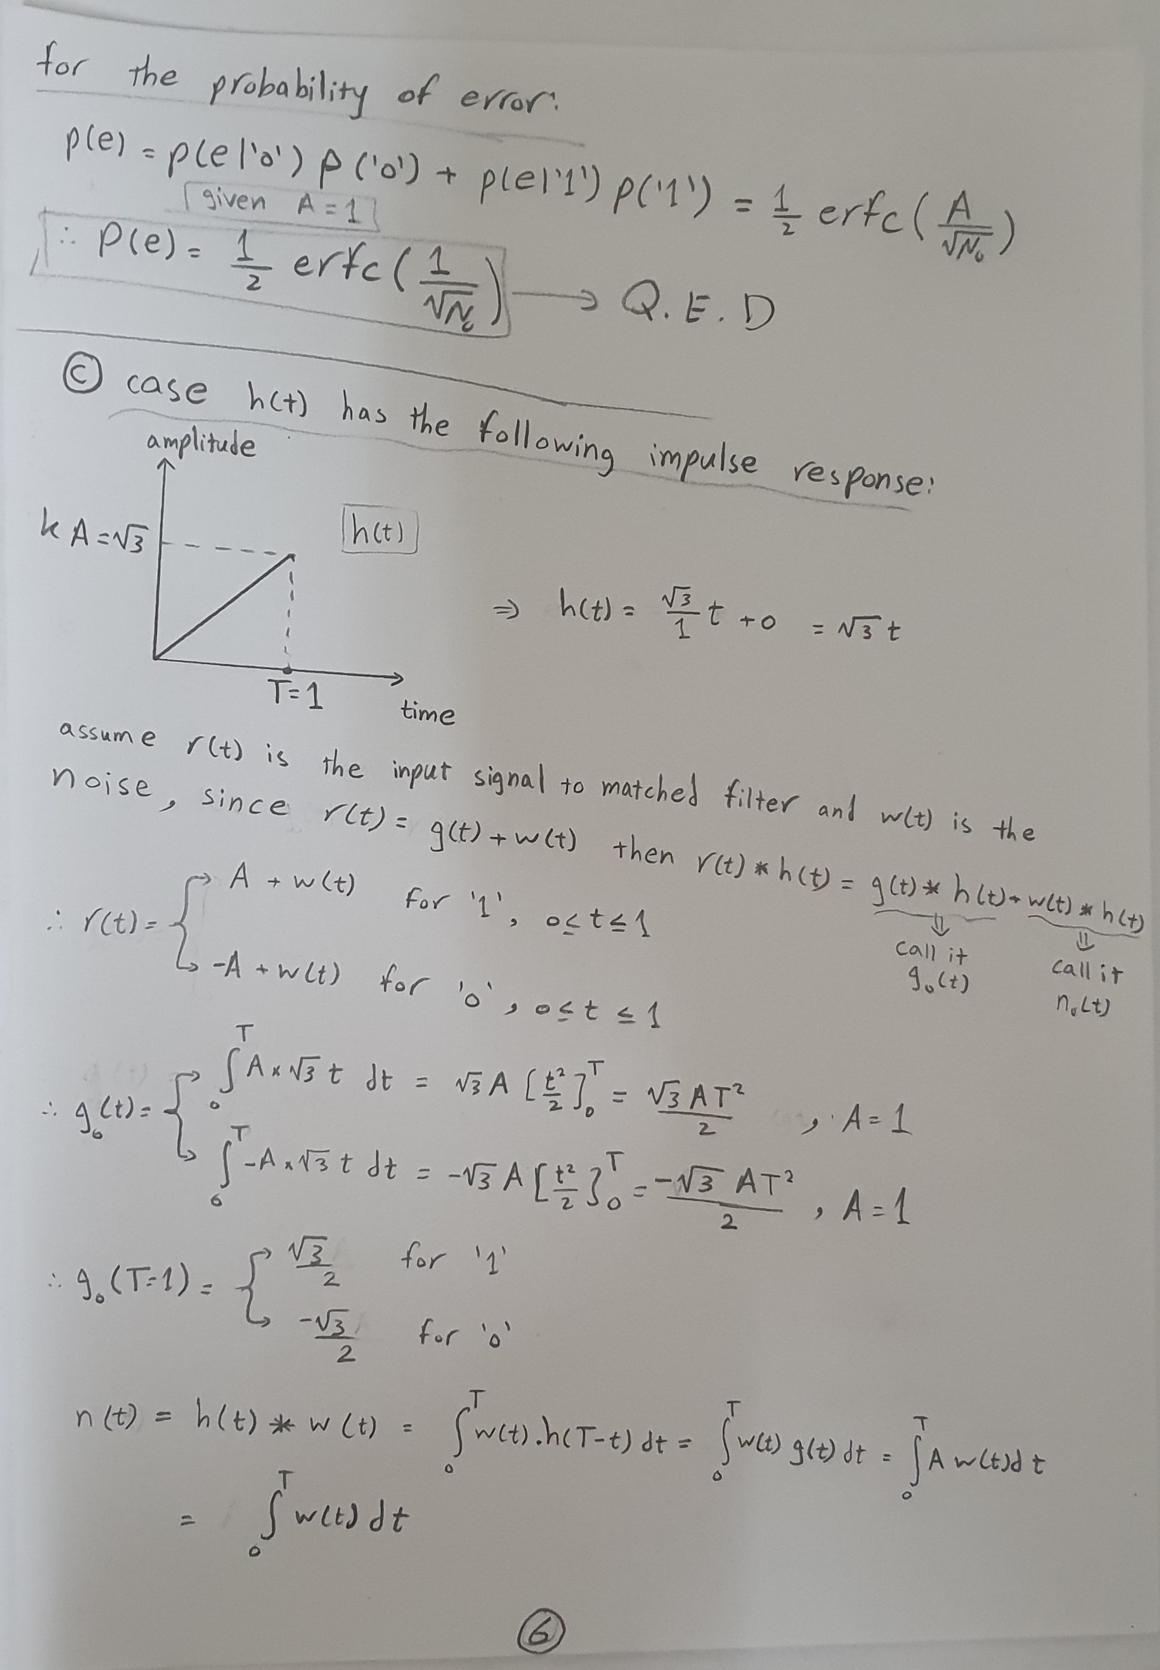 for the probability of error:
p(e) = p(e|'0') p('0') + p(e|'1') p('1') = 1/2 erfc(A/√N₀)
given A = 1
∴ P(e) = 1/2 erfc(1/√N₀) → Q.E.D
Ⓒ case h(t) has the following impulse response:
amplitude
k A = √3
h(t)
⇒ h(t) = √3/1 t + 0 = √3 t
T = 1
time
assume r(t) is the input signal to matched filter and w(t) is the
noise, since r(t) = g(t) + w(t) then r(t) * h(t) = g(t) * h(t) + w(t) * h(t)
∴ r(t) = { A + w(t) for '1', 0 ≤ t ≤ 1
-A + w(t) for '0', 0 ≤ t ≤ 1
call it g₀(t)
call it n₀(t)
∴ g₀(t) = { ∫₀ᵀ A × √3 t dt = √3 A [t²/2]₀ᵀ = √3 A T²/2 , A = 1
∫₀ᵀ -A × √3 t dt = -√3 A [t²/2]₀ᵀ = -√3 AT²/2 , A = 1
∴ g₀(T=1) = { √3/2 for '1'
-√3/2 for '0'
n(t) = h(t) * w(t) = ∫₀ᵀ w(t).h(T-t) dt = ∫₀ᵀ w(t) g(t) dt = ∫₀ᵀ A w(t) dt
= ∫₀ᵀ w(t) dt
⑥